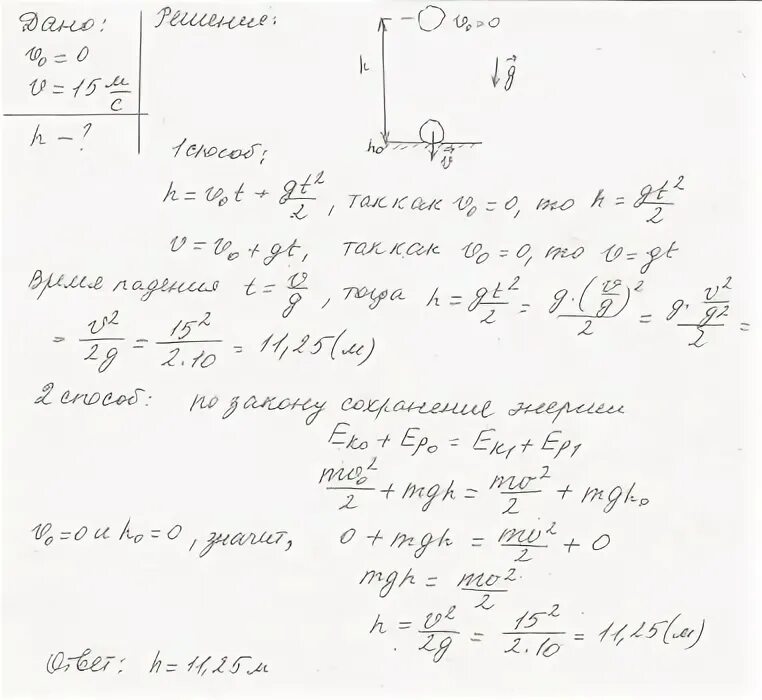 Дано:
v₀ = 0
v = 15 м/с
h – ?
Решение:
v₀ = 0
h
g⃗
h₀
v⃗
1 способ:
h = v₀t + gt²/2, так как v₀ = 0, то h = gt²/2
v = v₀ + gt, так как v₀ = 0, то v = gt
Время падения t = v/g, тогда h = gt²/2 = g·(v/g)²/2 = g·v²/g²/2 =
= v²/2g = 15²/2·10 = 11,25 (м)
2 способ: по закону сохранение энергии
Eк₀ + Eр₀ = Eк₁ + Eр₁
mv₀²/2 + mgh = mv²/2 + mgh₀
v₀ = 0 и h₀ = 0, значит, 0 + mgh = mv²/2 + 0
mgh = mv²/2
h = v²/2g = 15²/2·10 = 11,25 (м)
Ответ: h = 11,25 м